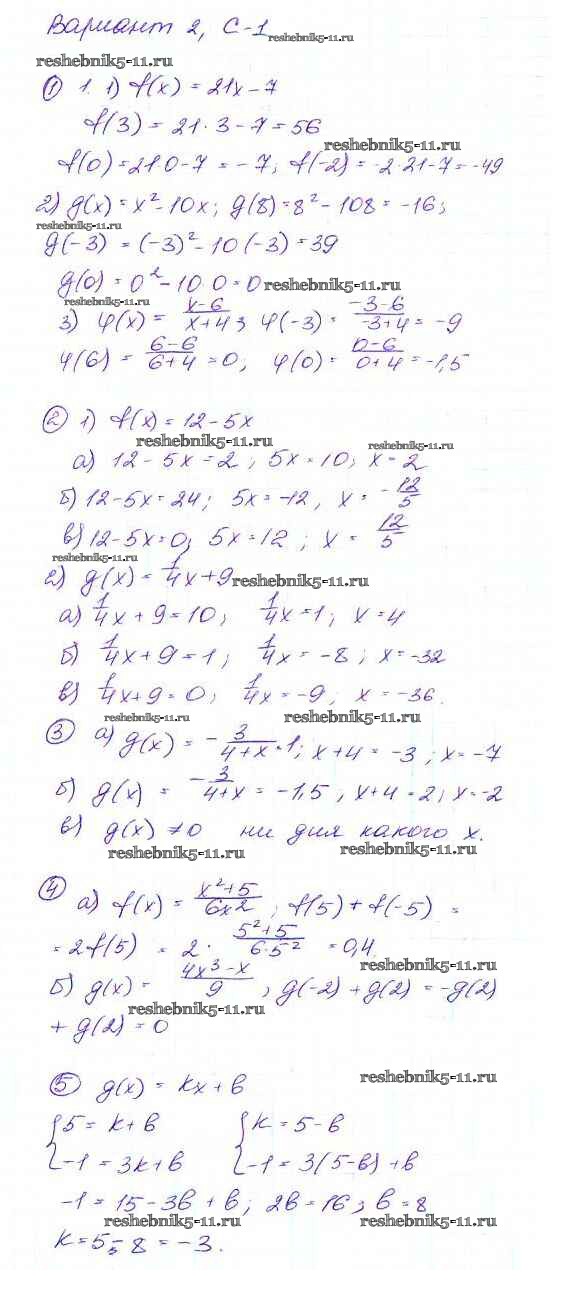 Вариант 2, С-1
reshebnik5-11.ru
reshebnik5-11.ru
① 1. 1) f(x) = 21x - 7
f(3) = 21·3 - 7 = 56
reshebnik5-11.ru
f(0) = 21·0 - 7 = -7; f(-2) = -2·21 - 7 = -49
2) g(x) = x² - 10x; g(8) = 8² - 108 = -16;
reshebnik5-11.ru
g(-3) = (-3)² - 10(-3) = 39
g(0) = 0² - 10·0 = 0
reshebnik5-11.ru
reshebnik5-11.ru
3) φ(x) = (x-6)/(x+4); φ(-3) = (-3-6)/(-3+4) = -9
φ(6) = (6-6)/(6+4) = 0; φ(0) = (0-6)/(0+4) = -1,5
② 1) f(x) = 12 - 5x
reshebnik5-11.ru
reshebnik5-11.ru
а) 12 - 5x = 2; 5x = 10; x = 2
б) 12 - 5x = 24; 5x = -12, x = -12/5
в) 12 - 5x = 0; 5x = 12; x = 12/5
reshebnik5-11.ru
2) g(x) = 1/4x + 9
reshebnik5-11.ru
а) 1/4x + 9 = 10; 1/4x = 1; x = 4
б) 1/4x + 9 = 1; 1/4x = -8; x = -32
в) 1/4x + 9 = 0; 1/4x = -9; x = -36.
reshebnik5-11.ru
reshebnik5-11.ru
③ а) g(x) = -3/(4+x) = 1; x + 4 = -3; x = -7
б) g(x) = -3/(4+x) = -1,5, x + 4 = 2; x = -2
в) g(x) ≠ 0 ни для какого x.
reshebnik5-11.ru
reshebnik5-11.ru
④ а) f(x) = (x²+5)/(6x²); f(5) + f(-5) =
= 2f(5) = 2·(5²+5)/(6·5²) = 0,4.
reshebnik5-11.ru
reshebnik5-11.ru
б) g(x) = (4x³-x)/9; g(-2) + g(2) = -g(2)
+ g(2) = 0
reshebnik5-11.ru
⑤ g(x) = kx + b
reshebnik5-11.ru
{5 = k + b {k = 5 - b
{-1 = 3k + b {-1 = 3(5-b) + b
-1 = 15 - 3b + b; 2b = 16; b = 8
reshebnik5-11.ru
reshebnik5-11.ru
k = 5 - 8 = -3.